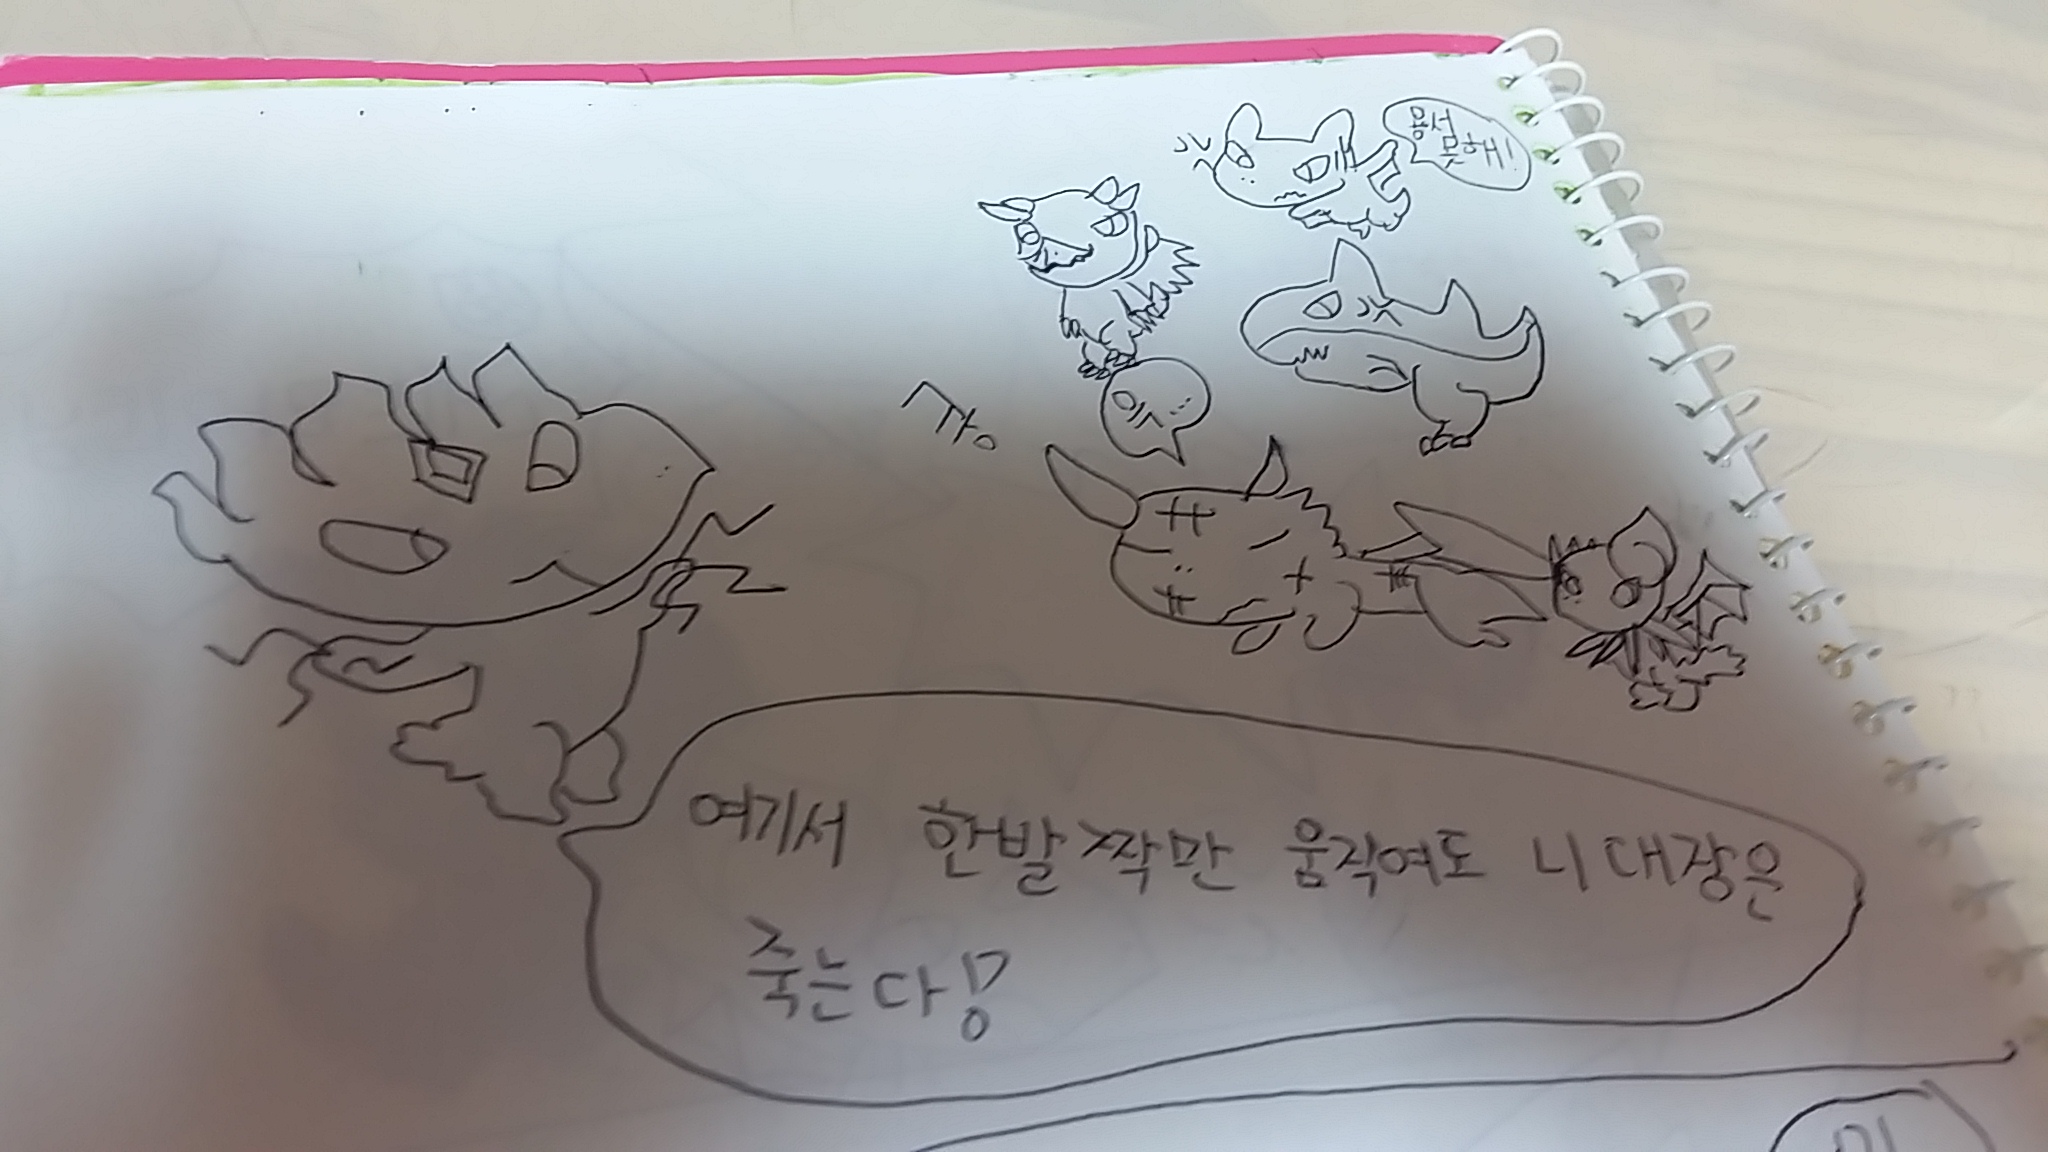 용서못해!
쾅
여기서 한발짝만 움직여도 니대장은
죽는다!